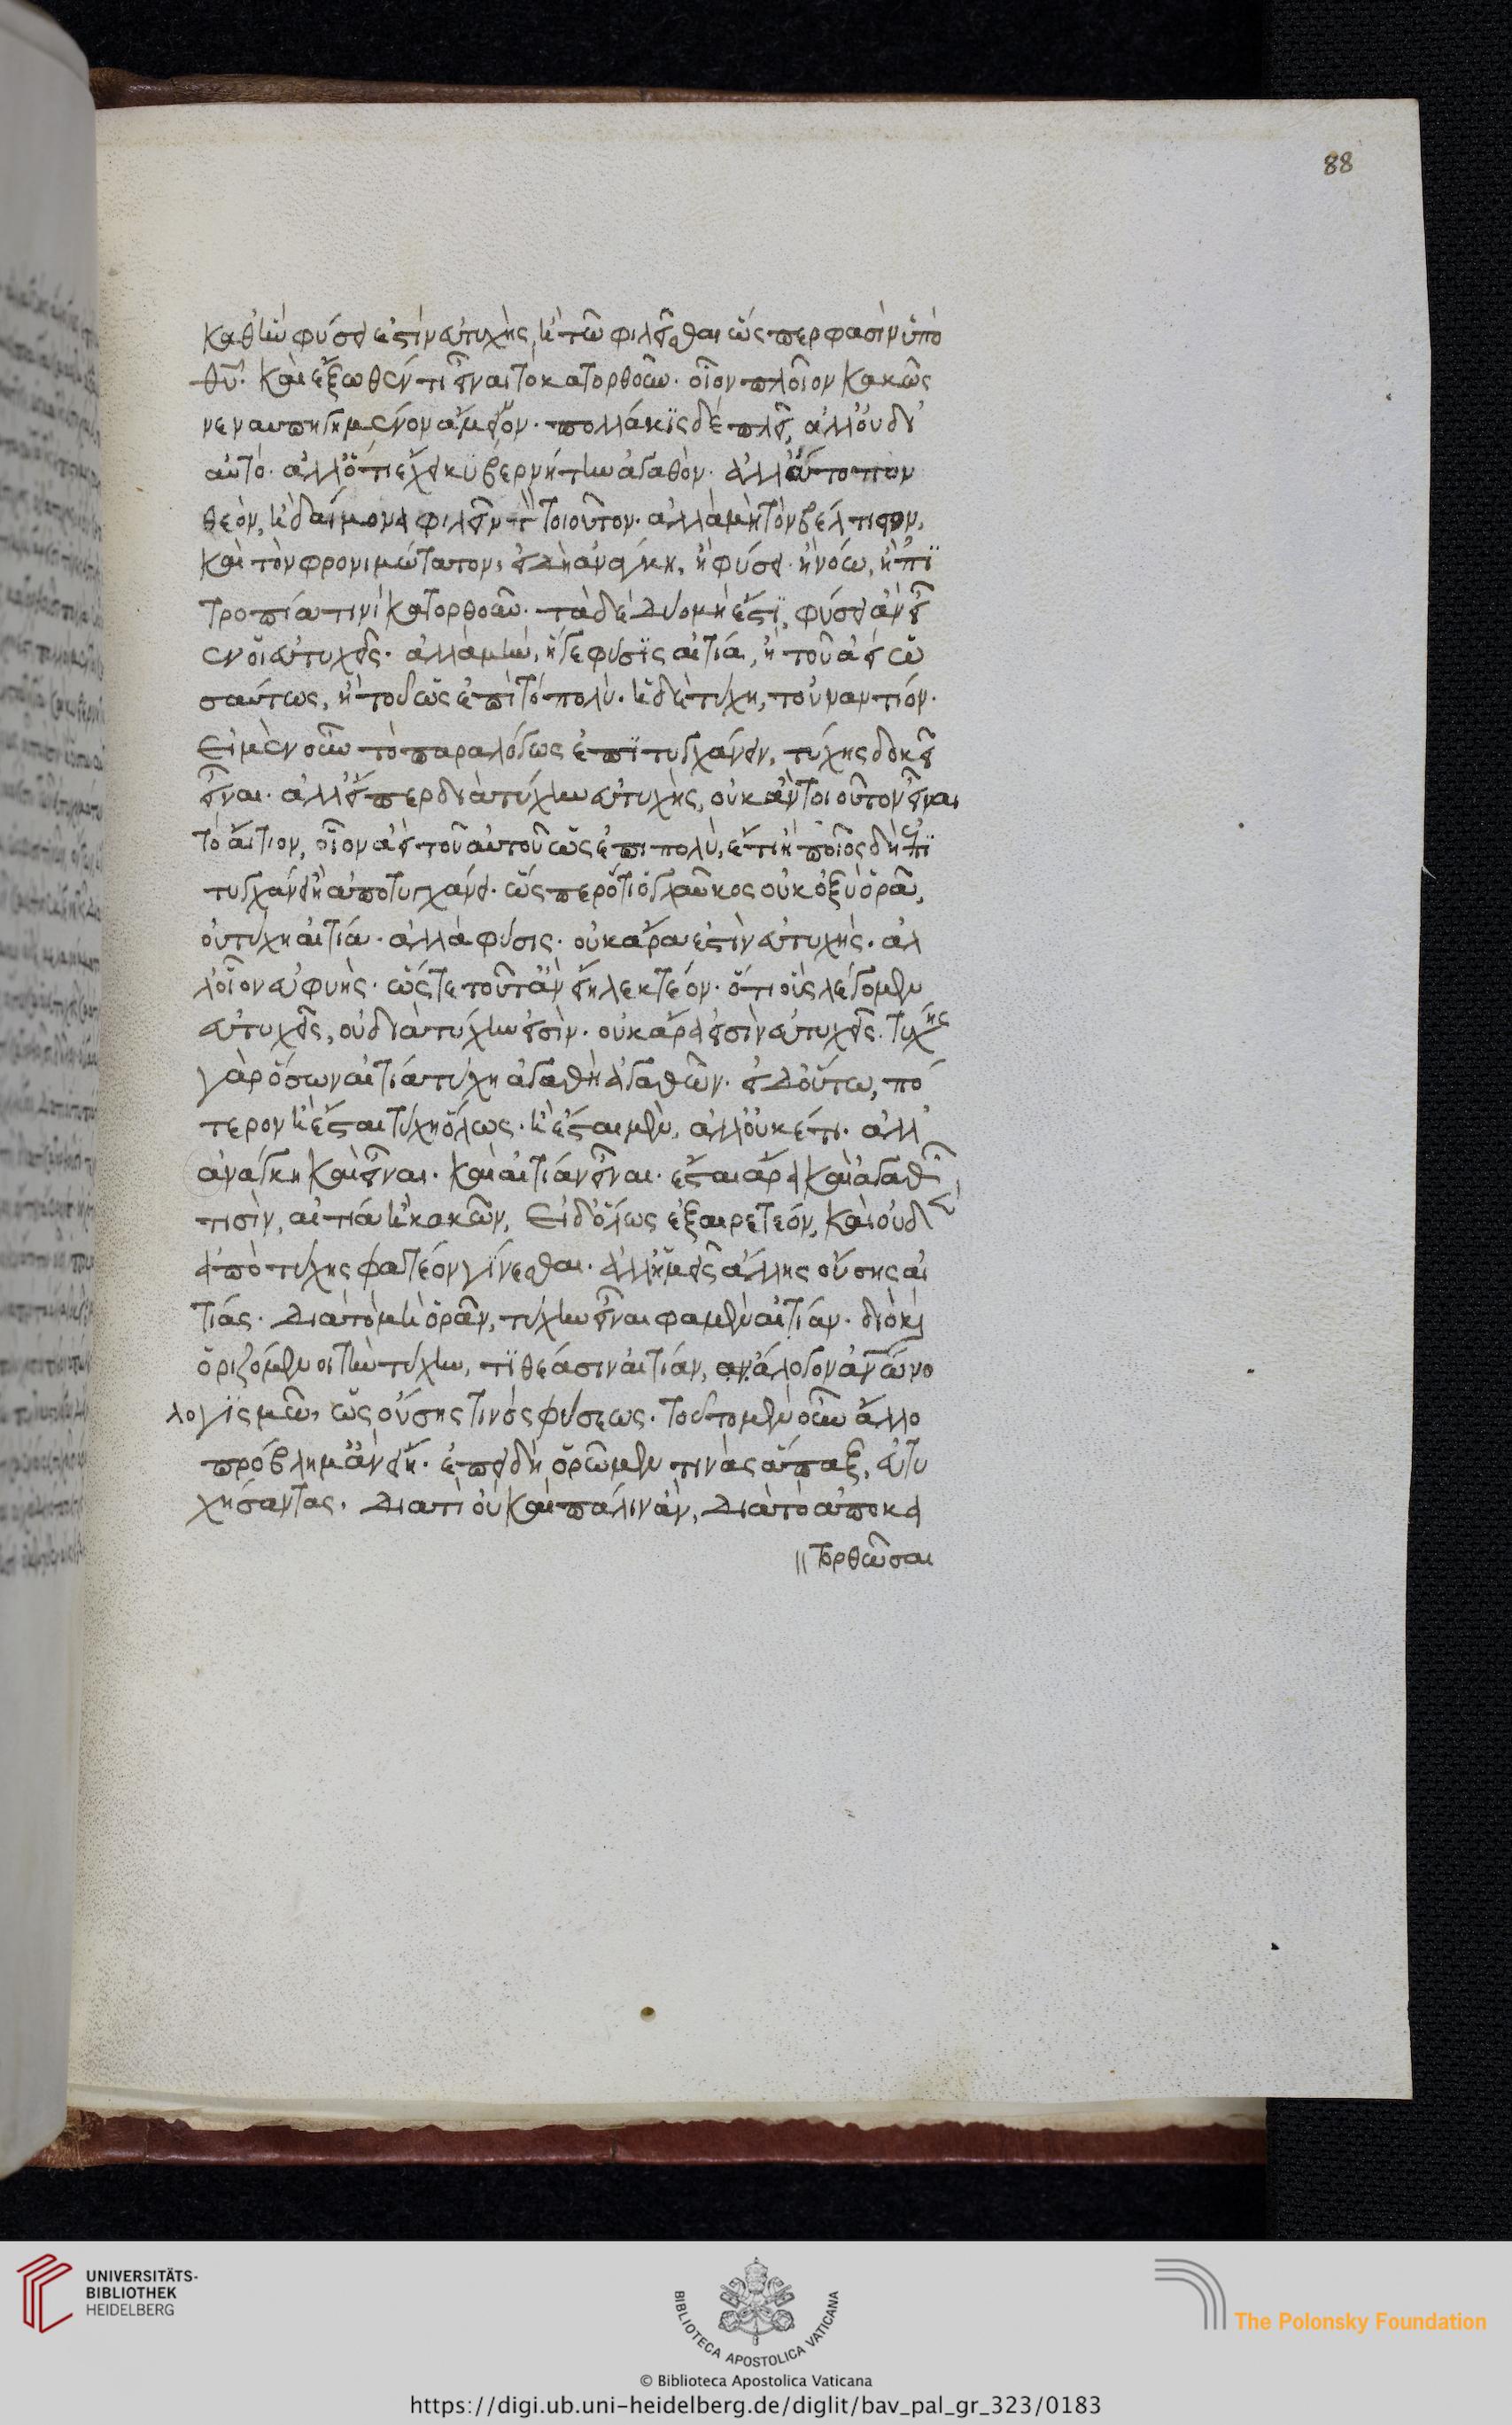 88
καθ' ἣν φύσει ἐστὶν εὐτυχὴς, ἢ τῶ φιλεῖσθαι ὥς περ φασὶν ὑπὸ
θυ. καὶ ἔξωθέν τι εἶναι τὸ κατορθοῦν. οἷον πλοῖον κακῶς
νεναυπηγημένον ἄμεινον. πολλάκϊς δὲ πλεῖ, ἀλλ' οὐ δι'
αὐτό. ἀλλ' ὅτι ἔχει κυβερνήτην ἀγαθὸν. ἀλλ'
θεὸν, ἢ δαίμονα φιλεῖν τὸν τοιοῦτον. ἀλλὰ μὴ τὸν βέλτιστον,
καὶ τὸν φρονιμώτατον, εἰ δὴ ἀνάγκη, ἢ φύσει. ἢ νόω, ἢ ἐπϊ
τροπία τινὶ κατορθοῦν. τὰ δὲ δύο μὴ ἐστϊ, φύσει ἂν εἶ
εν οἱ εὐτυχεῖς. ἀλλὰ μὴν, ἥ γε φύσϊς αἰτία, ἢ τοῦ ἀεὶ ὡ
σαύτως, ἢ τοῦ ὡς ἐπὶ τὸ πολύ. ἡ δὲ τύχη, τοὐναντίον.
Εἰ μὲν οὖν τὸ παραλόγως ἐπϊτυγχάνειν, τύχης δοκεῖ
εἶναι. ἀλλ' εἴπερ διὰ τύχην εὐτυχὴς, οὐκ ἂν τοιοῦτον εἶναι
τὸ αἴτιον, οἷον ἀεὶ τοῦ αὐτοῦ ὡς ἐπι πολὺ, ἔτι ἢ ποῖος δὴ ἐπϊ
τυγχάνει ἢ ἀποτυγχάνει. ὥς περ ὅτι ὁ γλαῦκος οὐκ ὀξὺ ὁρᾶ,
οὐ τύχη αἰτία. ἀλλὰ φύσις. οὐκ ἄρα ἐστὶν εὐτυχὴς. ἀλ
λ' οἷον εὐφυής. ὥς τε τοῦτ' ἂν εἴη λεκτέον. ὅτι οὓς λέγομεν
εὐτυχεῖς, οὐ διὰ τύχην εἰσὶν. οὐκ ἄρα εἰσὶν εὐτυχεῖς. τύχης
γὰρ ὅσων αἰτία τύχη ἀγαθὴ ἀγαθῶν. εἰ δ' οὕτω, πό
τερον ἢ ἔσται τύχη ὅλως. ἢ ἔσται μὲν, ἀλλ' οὐκ ἔτι. ἀλλ'
ἀνάγκη καὶ εἶναι. καὶ αἰτίαν εἶναι. ἔσται ἄρα καὶ ἀγαθῶν
τισὶν, αἰτία ἢ κακῶν, Εἰ δ' ὅλως ἐξαιρετέον, καὶ οὐδὲν
ἀπὸ τύχης φατέον γΐνεσθαι. ἀλλ' ἡμεῖς ἄλλης οὔσης αἰ
τίας. διὰ τὸ μὴ ὁρᾶν, τύχην εἶναι φαμὲν αἰτίαν. διὸ καὶ
ὁριζόμενοι τὴν τύχην, τϊθέασιν αἰτίαν, ἀνάλογον ἀνθρωπίνο
λογϊσμῶ, ὡς οὔσης τινὸς φύσεως. τοῦτο μὲν οὖν ἄλλο
πρόβλημ' ἂν εἴη. ἐπειδὴ ὁρῶμεν τινὰς ἅπαξ, εὐτυ
χήσαντας, διατὶ οὐ καὶ πάλιν ἂν, διὰ τὸ ἀποκα
τορθῶσαι
UNIVERSITÄTS-
BIBLIOTHEK
HEIDELBERG
BIBLIOTECA APOSTOLICA VATICANA
The Polonsky Foundation
© Biblioteca Apostolica Vaticana
https://digi.ub.uni-heidelberg.de/diglit/bav_pal_gr_323/0183